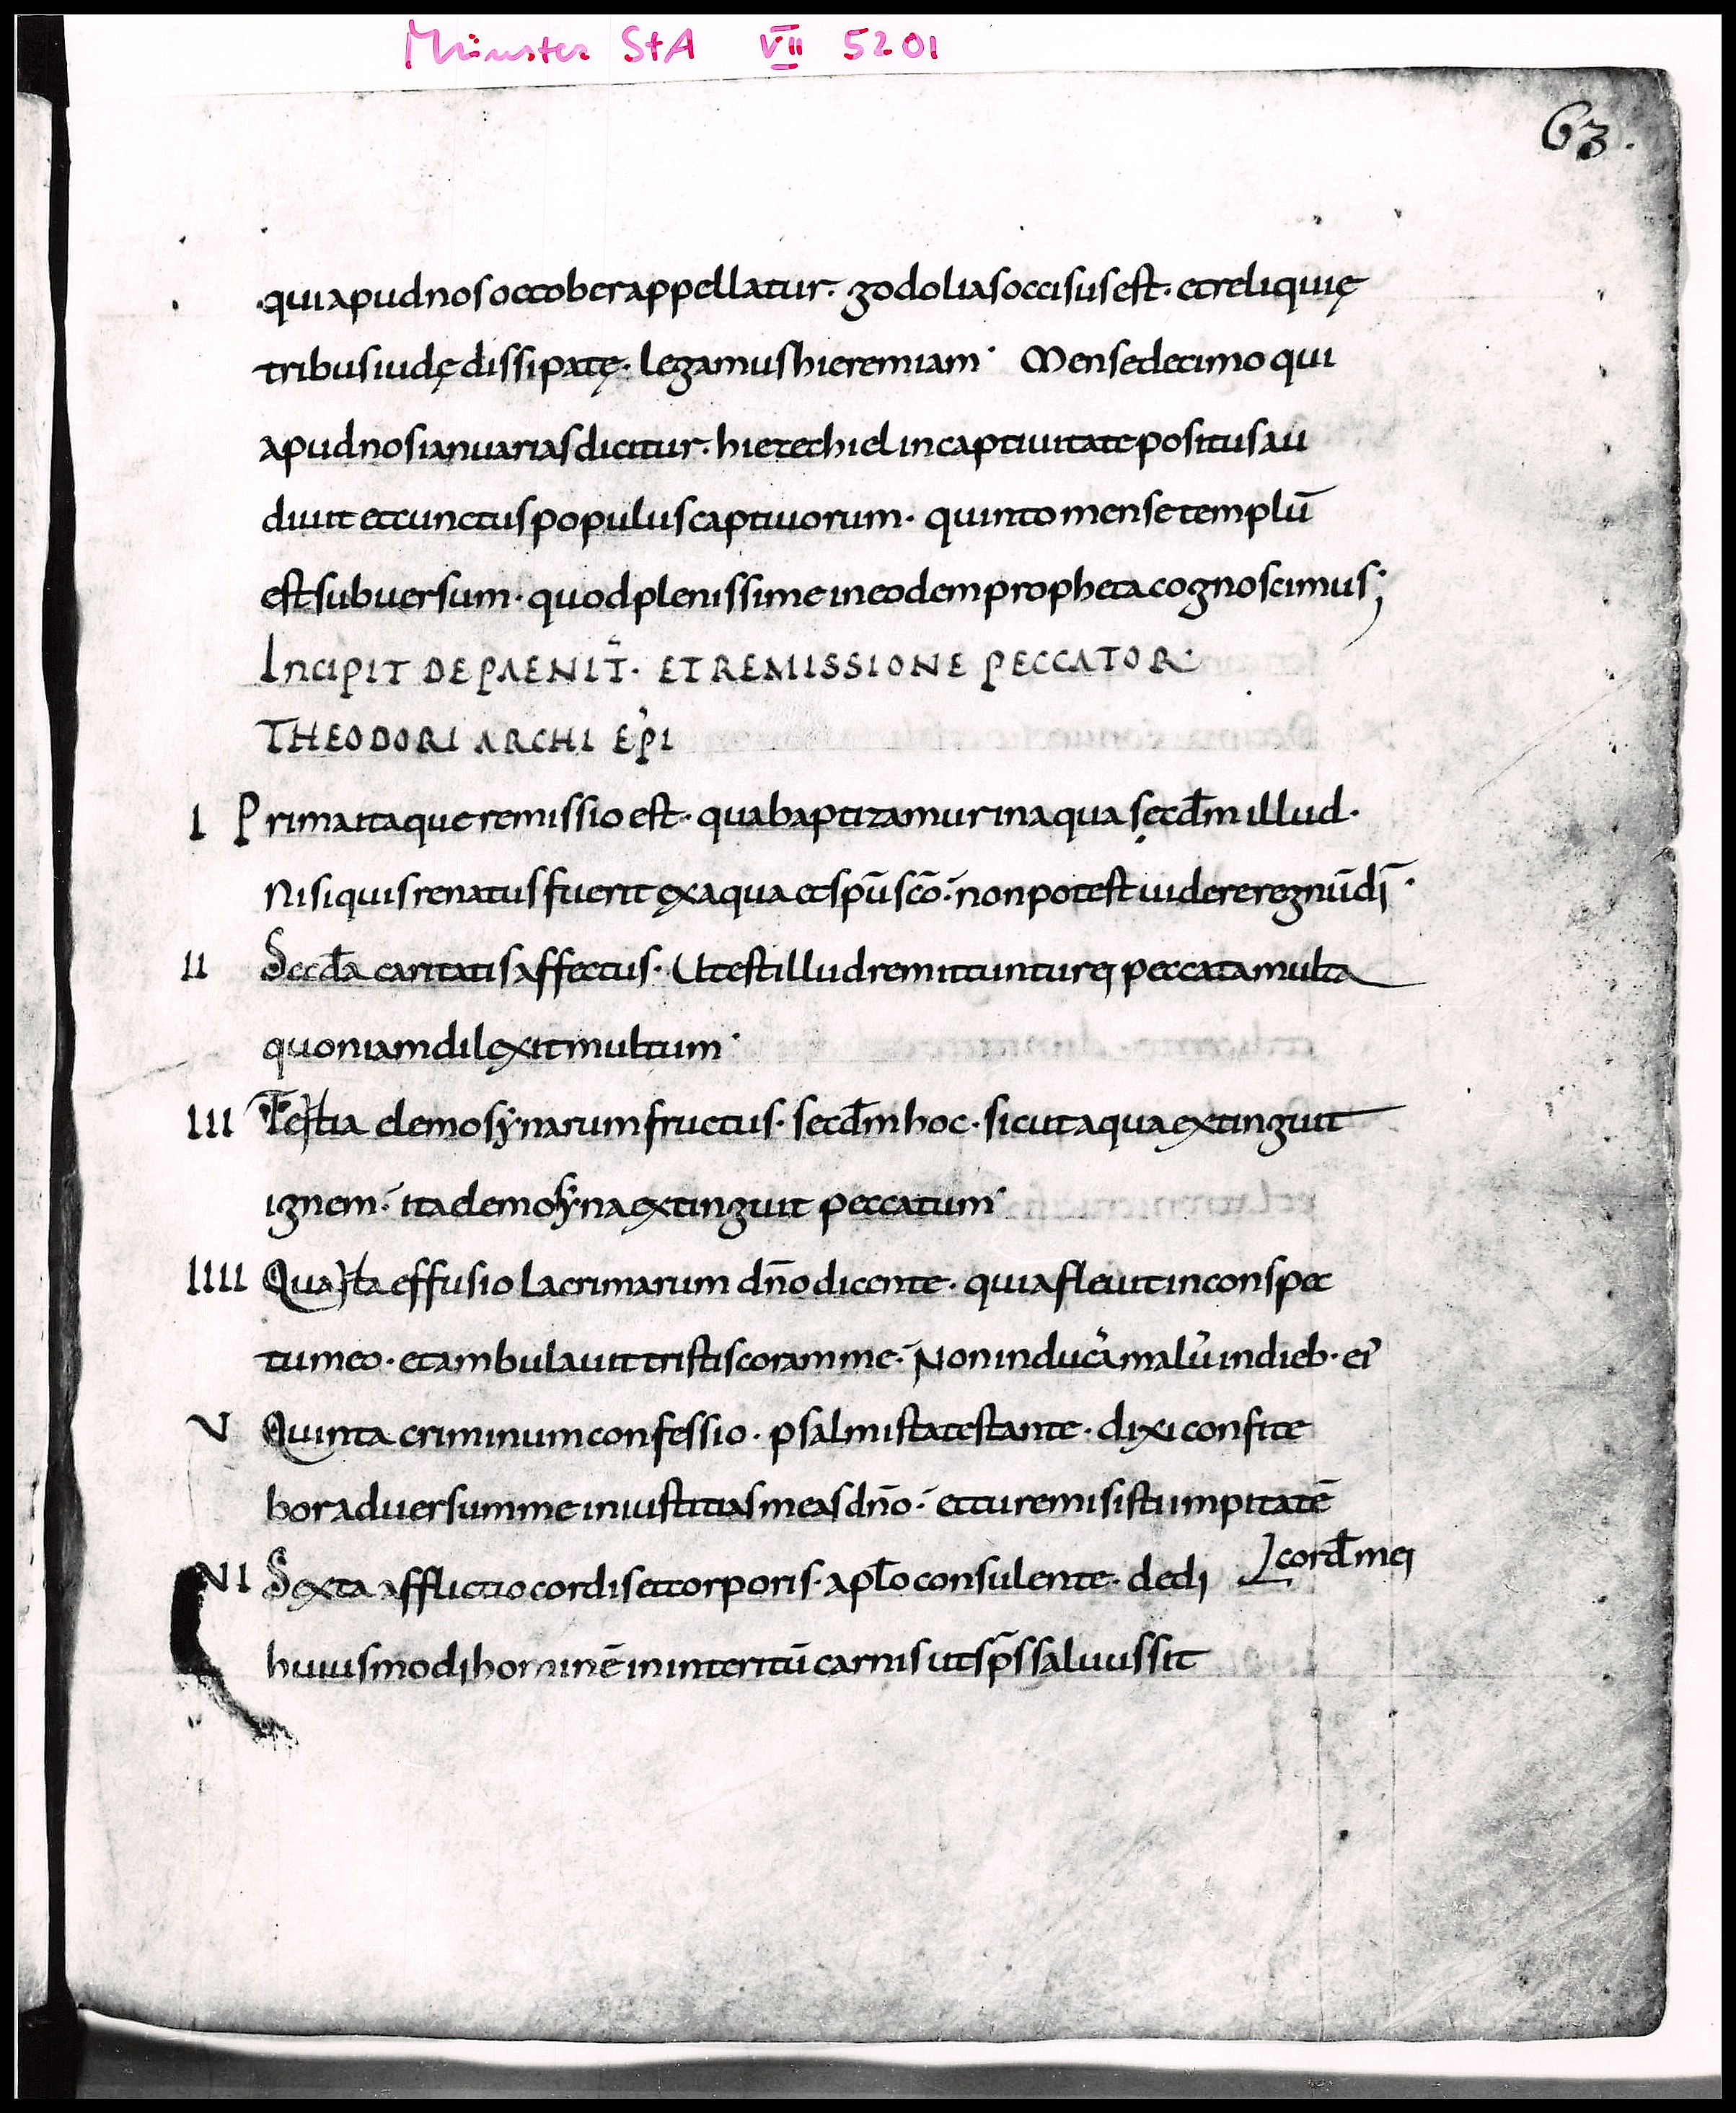 Münster StA VII 5201
63.
qui apud nos october appellatur. godolias occisus est. et reliquię
tribus iudę dissipatę. legamus hieremiam. Mense decimo qui
apud nos ianuarias dicitur. hiezechiel in captiuitate positus au
diuit et cunctus populus captiuorum. quinto mense templū
est subuersum. quod plenissime in eodem propheta cognoscimus;
INCIPIT DE PAENIT̄. ET REMISSIONE PECCATOR
THEODORI ARCHI EPI
I Prima itaque remissio est. qua baptizamur in aqua secd̄m illud.
Nisi quis renatus fuerit ex aqua et spū scō. non potest uidere regnū dī.
II Secd̄a caritatis affectus. Ut est illud remittuntur ei peccata multa
quoniam dilexit multum.
III Tertia elemosynarum fructus. secd̄m hoc. sicut aqua extinguit
ignem. ita elemosyna extinguit peccatum
IIII Quarta effusio lacrimarum dn̄o dicente. quia fleuit in conspec
tu meo. et ambulauit tristis coram me. Non inducā malū in dieb. ei'
V Quinta criminum confessio. psalmista testante. dixi confite
bor aduersum me iniustitias meas dn̄o. et tu remisisti impitatē
cord̄ mei
VI Sexta afflictio cordis et corporis. apl̄o consulente. dedi
huiusmodi hominē in interitū carnis ut sp̄s saluus sit